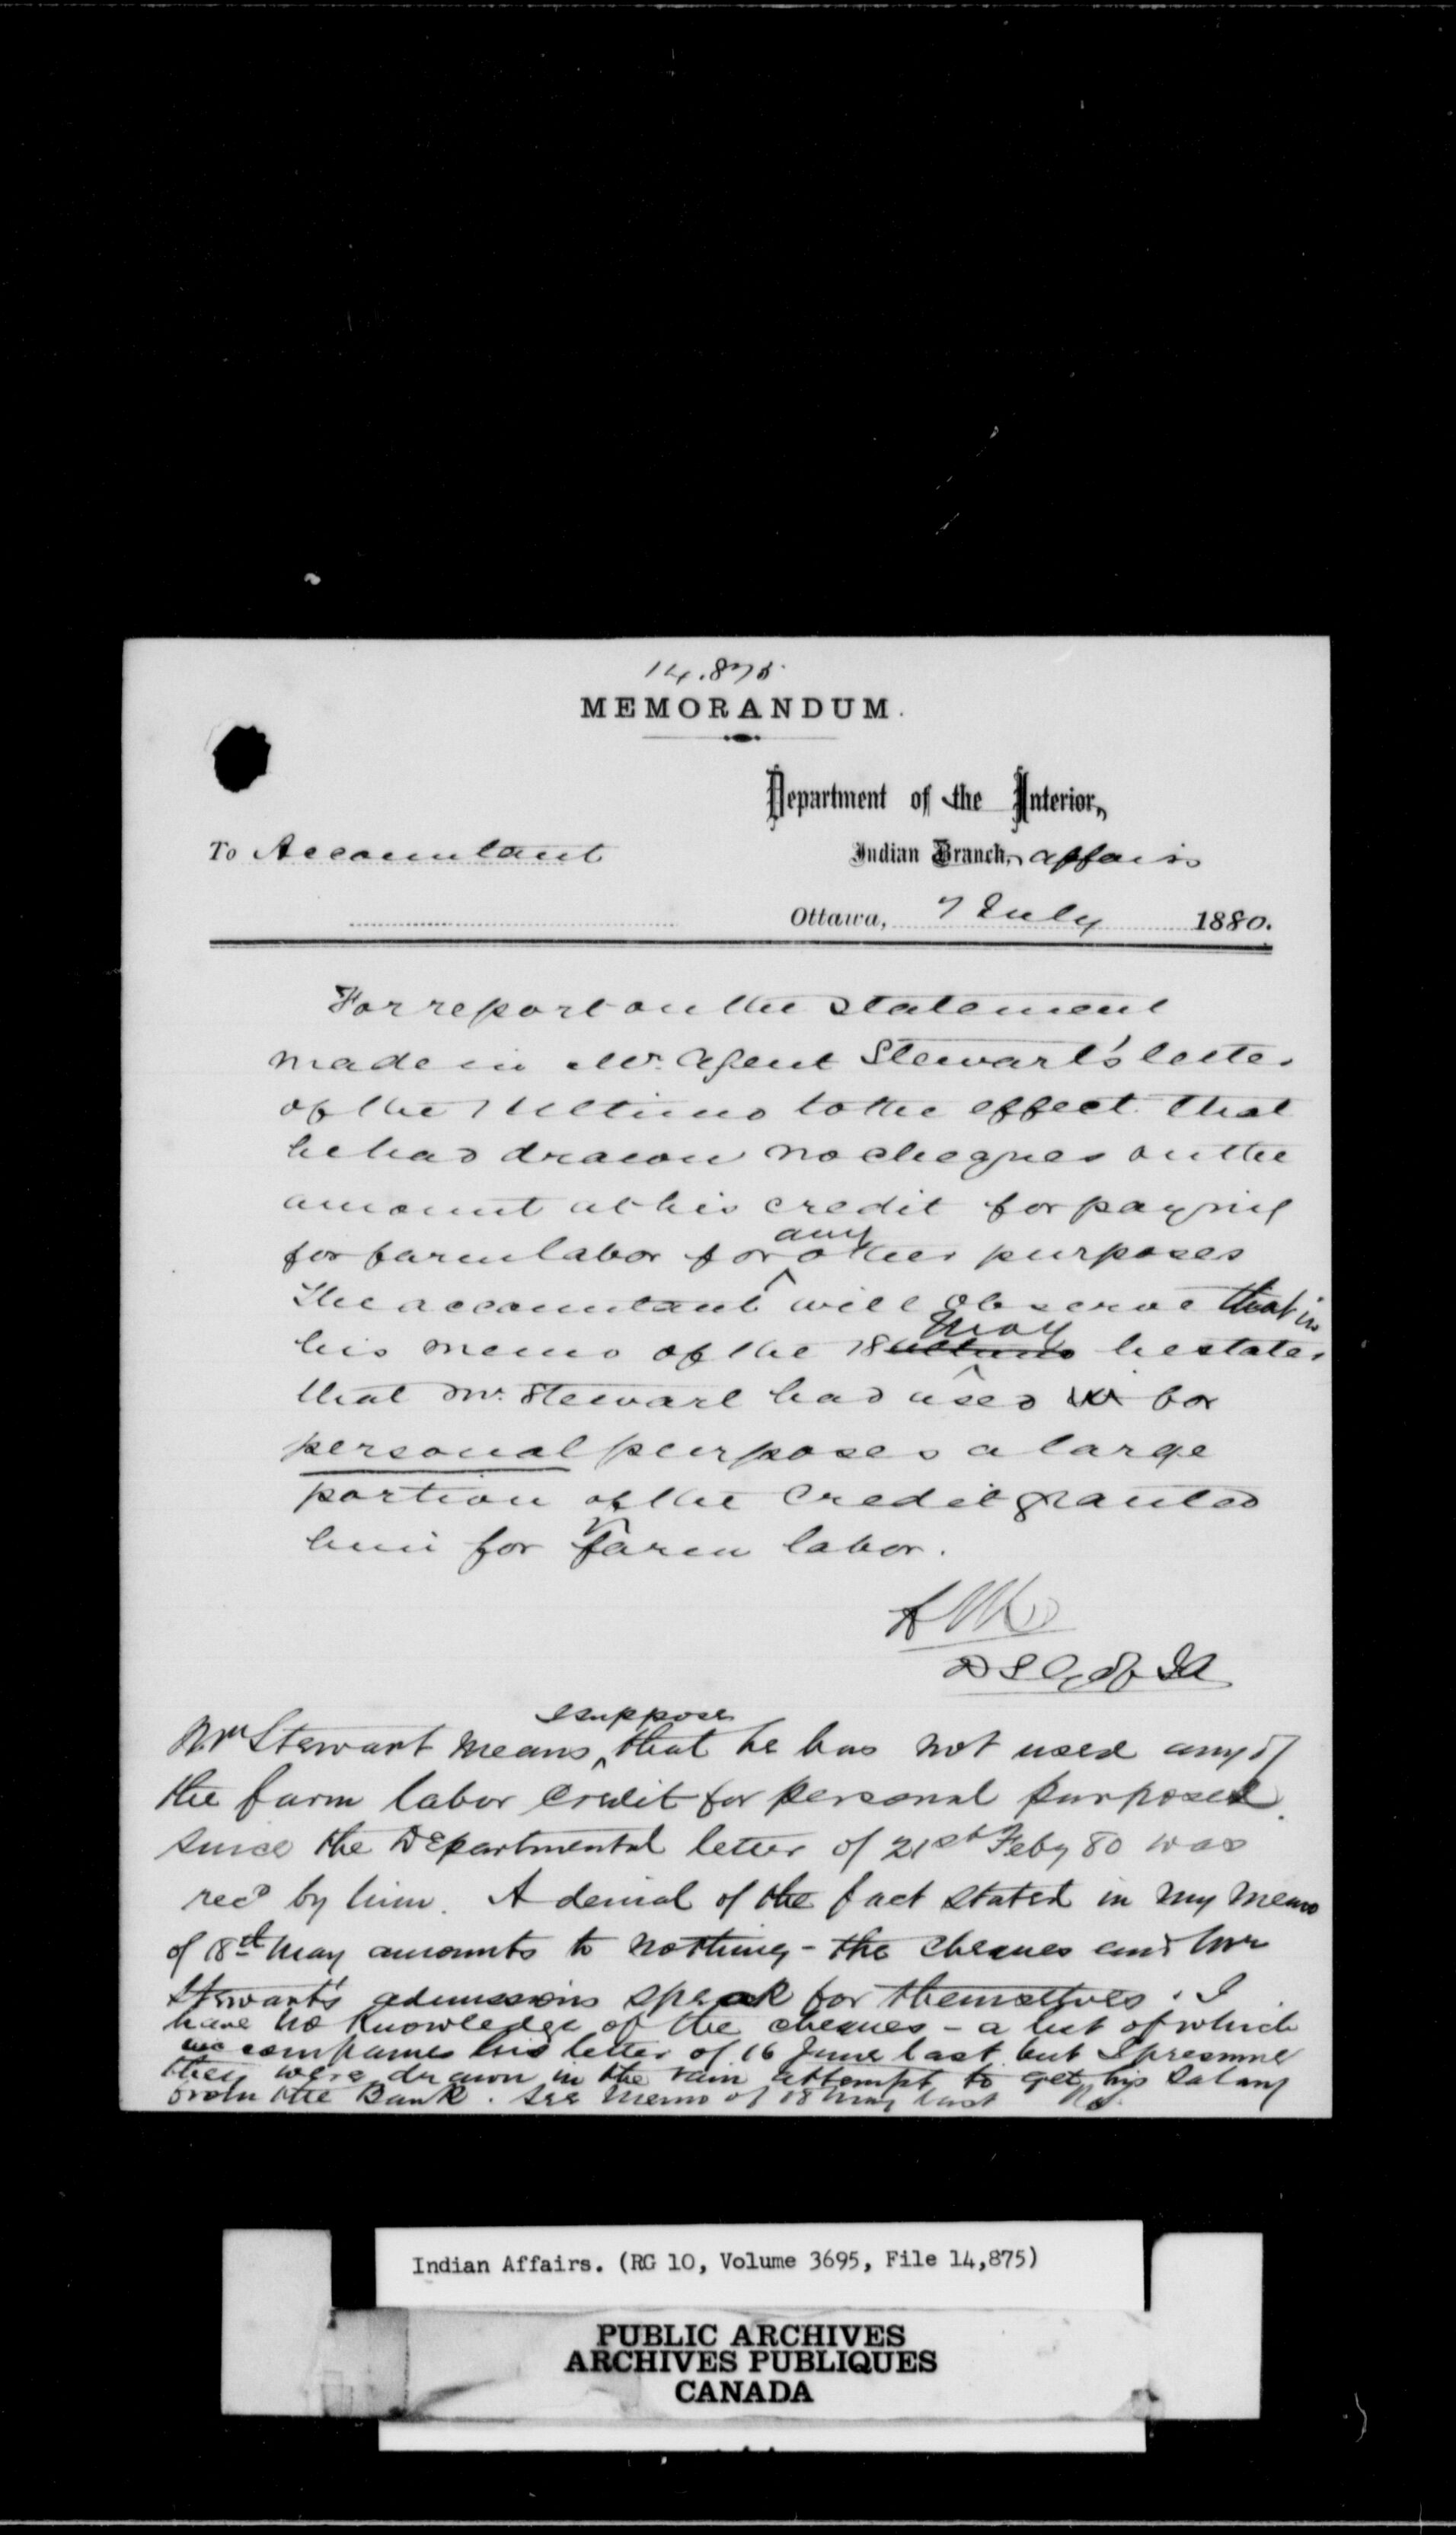 14.875
MEMORANDUM.
Department of the Interior,
To Accountant
Indian Branch, affairs
Ottawa, 7 July 1880.
For report on the statement
made in Mr. Agent Stewart's letter
of the ultimo to the effect that
he had drawn no cheques on the
amount at his credit for paying
for farm labor for any other purposes
The accountant will observe that in
his memo of the 18 ultimo May he states
that Mr. Stewart had used for
personal purposes a large
portion of the credit granted
him for farm labor.
D S G of I A
Mr Stewart means, I suppose that he has not used any of
the farm labor credit for personal purposes
since the Departmental letter of 21st Feby 80 was
recd by him. A denial of the fact stated in my memo
of 18th May amounts to nothing - the cheques and Mr
Stewart's admissions speak for themselves. I
have no knowledge of the cheques - a list of which
accompanies his letter of 16 June last but I presume
they were drawn in the vain attempt to get his salary
from the Bank. See memo of 18 May last
Indian Affairs. (RG 10, Volume 3695, File 14,875)
PUBLIC ARCHIVES
ARCHIVES PUBLIQUES
CANADA